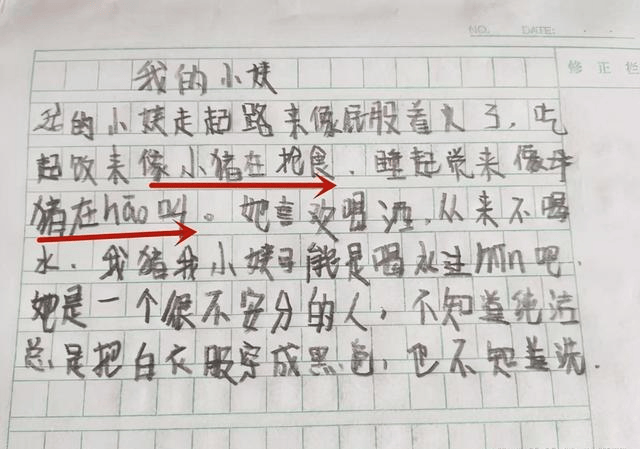 NO.  DATE:
修正栏
我的小姨
我的小姨走起路来像屁股着火了，吃
起饭来像小猪在抢食．睡起觉来像母
猪在hāo叫。她喜欢喝酒，从来不喝
水．我猪我小姨可能是喝水过mǐn吧．
她是一个很不安分的人，不知道纯洁
总是把白衣服穿成黑色，也不知道洗．